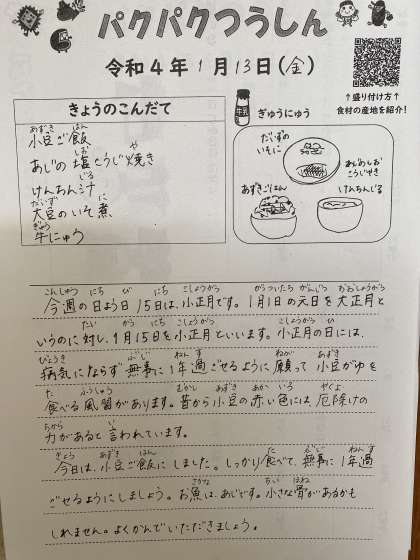 パクパクつうしん
令和4年1月13日(金)
↑盛り付け方↑
食材の産地を紹介!
きょうのこんだて
小豆ご飯
あじの塩こうじ焼き
けんちん汁
大豆のいそ煮
牛にゅう
ぎゅうにゅう
だいずの
いそに
あじのしお
こうじやき
あずきごはん
けんちんじる
今週の日よう日15日は、小正月です。1月1日の元日を大正月と
いうのに対し、1月15日を小正月といいます。小正月の日には、
病気にならず無事に1年過ごせるように願って小豆がゆを
食べる風習があります。昔から小豆の赤い色には、厄除けの
力があると言われています。
今日は、小豆ご飯にしました。しっかり食べて、無事に1年過
ごせるようにしましょう。お魚は、あじです。小さな骨があるかも
しれません。よくかんでいただきましょう。